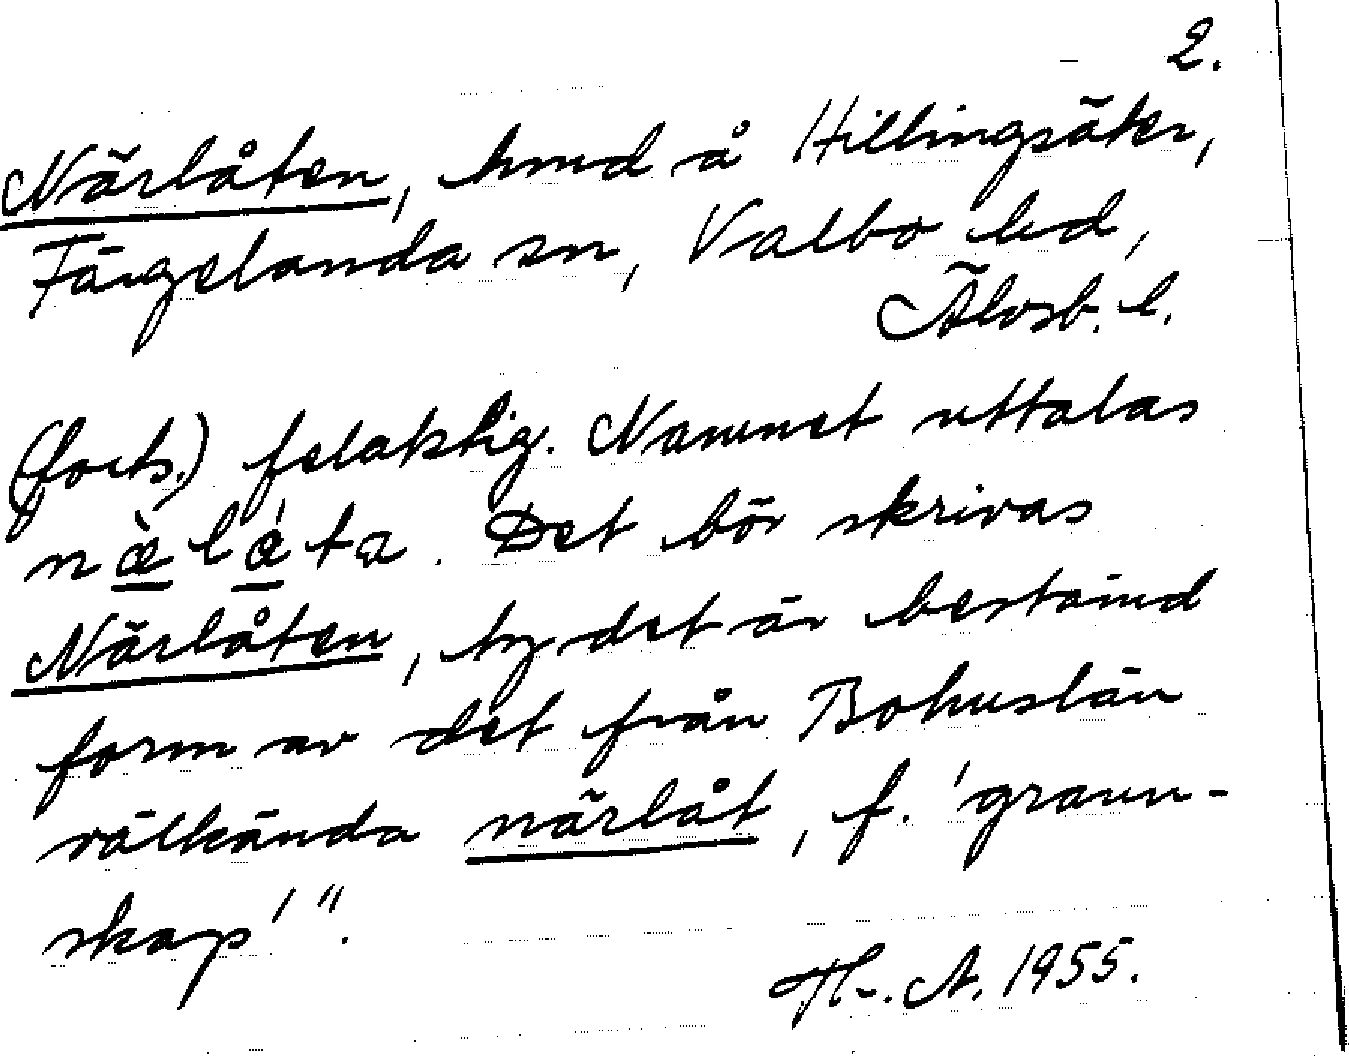 2.
Närlåten, hmd å Hillingsäter,
Färgelanda sn, Valbo hd,
Älvsb. l.
(forts.) felaktig. Namnet uttalas
næ̀lǽta. Det bör skrivas
Närlåten, ty det är bestämd
form av det från Bohuslän
välkända närlåt, f. 'grann-
skap'".
Hj. A. 1955.